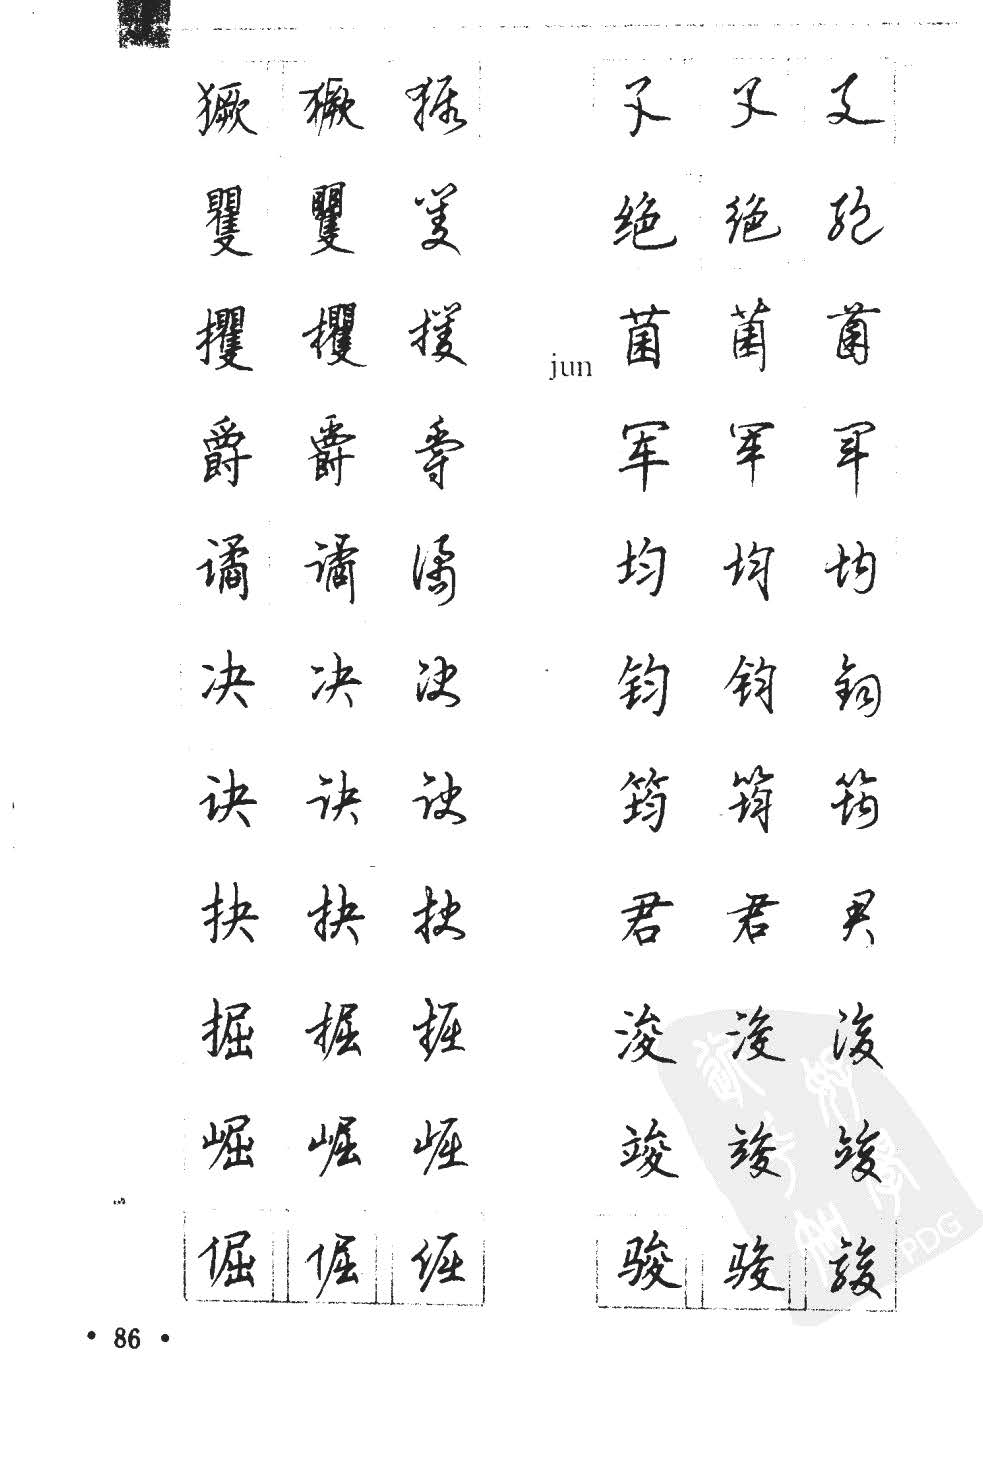 獗 獗 獗 孓 孓 孓
矍 矍 矍 绝 绝 绝
攫 攫 攫 jun 菌 菌 菌
爵 爵 爵 军 军 军
谲 谲 谲 均 均 均
决 决 决 钧 钧 钧
诀 诀 诀 筠 筠 筠
抉 抉 抉 君 君 君
掘 掘 掘 浚 浚 浚
崛 崛 崛 竣 竣 竣
倔 倔 倔 骏 骏 骏
PDG
• 86 •